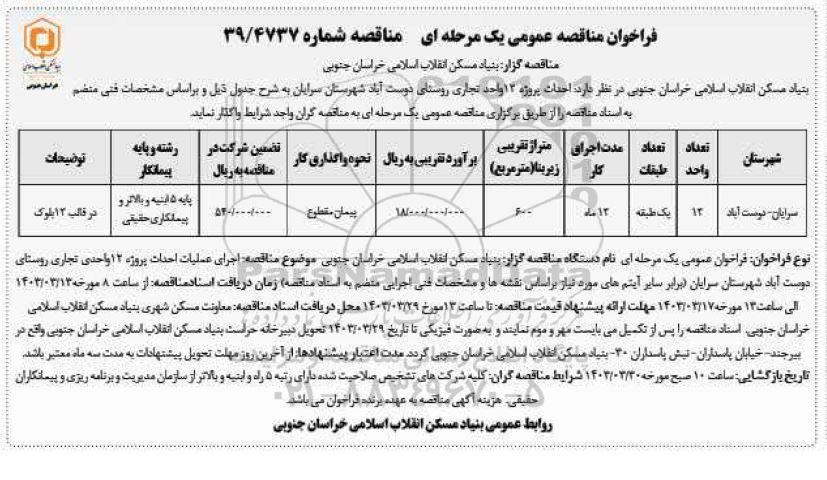 فراخوان مناقصه عمومی یک مرحله ای مناقصه شماره ۳۹/۴۷۳۷
مناقصه گزار: بنیاد مسکن انقلاب اسلامی خراسان جنوبی
بنیاد مسکن انقلاب اسلامی خراسان جنوبی در نظر دارد: احداث پروژه ۱۲واحد تجاری روستای دوست آباد شهرستان سرایان به شرح جدول ذیل و براساس مشخصات فنی منضم
به اسناد مناقصه را از طریق برگزاری مناقصه عمومی یک مرحله ای به مناقصه گران واجد شرایط واگذار نماید.
شهرستان تعداد واحد تعداد طبقات مدت اجرای کار متراژ تقریبی زیربنا(مترمربع) برآورد تقریبی به ریال نحوه واگذاری کار تضمین شرکت در مناقصه به ریال رشته و پایه پیمانکار توضیحات
سرایان-دوست آباد ۱۲ یک طبقه ۱۲ ماه ۶۰۰ ۱۸/۰۰۰/۰۰۰/۰۰۰ پیمان مقطوع ۵۴۰/۰۰۰/۰۰۰ پایه ۵ ابنیه و بالاتر و پیمانکاری حقیقی در قالب ۱۲بلوک
نوع فراخوان: فراخوان عمومی یک مرحله ای نام دستگاه مناقصه گزار: بنیاد مسکن انقلاب اسلامی خراسان جنوبی موضوع مناقصه: اجرای عملیات احداث پروژه ۱۲واحدی تجاری روستای
دوست آباد شهرستان سرایان (برابر سایر آیتم های مورد نیاز براساس نقشه ها و مشخصات فنی اجرایی منضم به اسناد مناقصه) زمان دریافت اسناد مناقصه: از ساعت ۸ مورخه ۱۴۰۳/۰۳/۱۳
الی ساعت۱۳ مورخه ۱۴۰۳/۰۳/۱۷ مهلت ارائه پیشنهاد قیمت مناقصه: تا ساعت ۱۳مورخ ۱۴۰۳/۰۳/۲۹ محل دریافت اسناد مناقصه: معاونت مسکن شهری بنیاد مسکن انقلاب اسلامی
خراسان جنوبی. اسناد مناقصه را پس از تکمیل می بایست مهر و موم نمایند و به صورت فیزیکی تا تاریخ ۱۴۰۳/۰۳/۲۹ تحویل دبیرخانه حراست بنیاد مسکن انقلاب اسلامی خراسان جنوبی واقع در
بیرجند- خیابان پاسداران- نبش پاسداران ۳۰- بنیاد مسکن انقلاب اسلامی خراسان جنوبی گردد. مدت اعتبار پیشنهادها: از آخرین روز مهلت تحویل پیشنهادات به مدت سه ماه معتبر باشد.
تاریخ بازگشایی: ساعت ۱۰ صبح مورخه ۱۴۰۳/۰۳/۳۰ شرایط مناقصه گران: کلیه شرکت های تشخیص صلاحیت شده دارای رتبه ۵ راه و ابنیه و بالاتر از سازمان مدیریت و برنامه ریزی و پیمانکاران
حقیقی. هزینه آگهی مناقصه به عهده برنده فراخوان می باشد.
روابط عمومی بنیاد مسکن انقلاب اسلامی خراسان جنوبی
ParsNamadData
۰۲۱-۸۸۳۴۹۶۷۰-۵